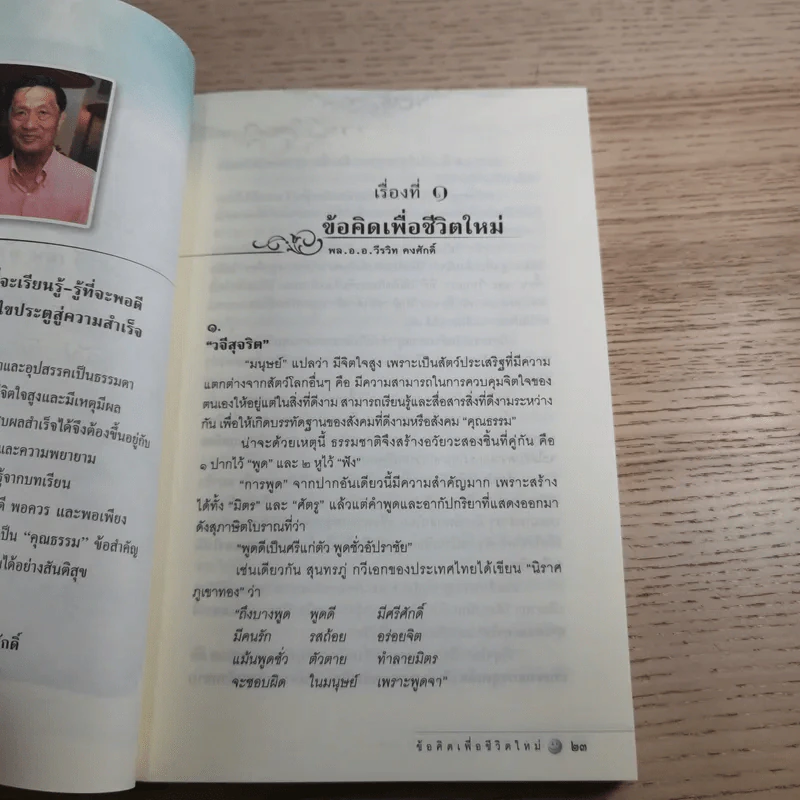 จะเรียนรู้-รู้ที่จะพอดี
ไขประตูสู่ความสำเร็จ
และอุปสรรคเป็นธรรมดา
จิตใจสูงและมีเหตุมีผล
ผลสำเร็จได้จึงต้องขึ้นอยู่กับ
และความพยายาม
จากบทเรียน
พอควร และพอเพียง
เป็น “คุณธรรม” ข้อสำคัญ
ได้อย่างสันติสุข
เรื่องที่ ๑
ข้อคิดเพื่อชีวิตใหม่
พล.อ.อ.วีรวิท คงศักดิ์
๑.
“วจีสุจริต”
“มนุษย์” แปลว่า มีจิตใจสูง เพราะเป็นสัตว์ประเสริฐที่มีความ
แตกต่างจากสัตว์โลกอื่นๆ คือ มีความสามารถในการควบคุมจิตใจของ
ตนเองให้อยู่แต่ในสิ่งที่ดีงาม สามารถเรียนรู้และสื่อสารสิ่งที่ดีงามระหว่าง
กัน เพื่อให้เกิดบรรทัดฐานของสังคมที่ดีงามหรือสังคม “คุณธรรม”
น่าจะด้วยเหตุนี้ ธรรมชาติจึงสร้างอวัยวะสองชิ้นที่คู่กัน คือ
๑ ปากไว้ “พูด” และ ๒ หูไว้ “ฟัง”
“การพูด” จากปากอันเดียวนี้มีความสำคัญมาก เพราะสร้าง
ได้ทั้ง “มิตร” และ “ศัตรู” แล้วแต่คำพูดและอากัปกริยาที่แสดงออกมา
ดังสุภาษิตโบราณที่ว่า
“พูดดีเป็นศรีแก่ตัว พูดชั่วอัปราชัย”
เช่นเดียวกัน สุนทรภู่ กวีเอกของประเทศไทยได้เขียน “นิราศ
ภูเขาทอง” ว่า
“ถึงบางพูด พูดดี มีศรีศักดิ์
มีคนรัก รสถ้อย อร่อยจิต
แม้นพูดชั่ว ตัวตาย ทำลายมิตร
จะชอบผิด ในมนุษย์ เพราะพูดจา”
ข้อคิดเพื่อชีวิตใหม่ ๒๓